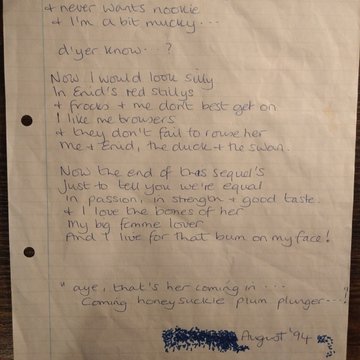 & never wants nookie
& I'm a bit mucky...
d'yer know...?
Now I would look silly
In Enid's red stillys
& frocks & me don't best get on
I like me trousers
& they don't fail to rouse her
Me & Enid, the duck & the swan.
Now the end of this sequel's
Just to tell you we're equal
in passion, in strength & good taste.
& I love the bones of her
My big femme lover
And I live for that bum on my face!
"aye, that's her coming in...
Coming honeysuckle plum plunger...!
August '94